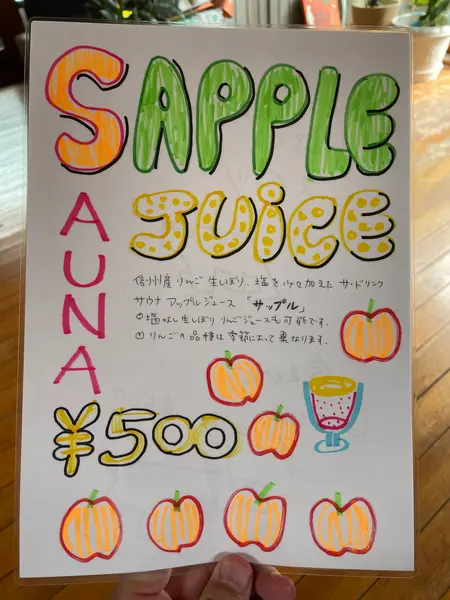 SAPPLE
AUNA
JUiCE
信州産りんご生しぼり、塩を少々加えた サ・ドリンク
サウナ アップルジュース 「サップル」
塩なし生しぼりりんごジュースも可能です。
りんごの品種は季節によって異なります。
¥500